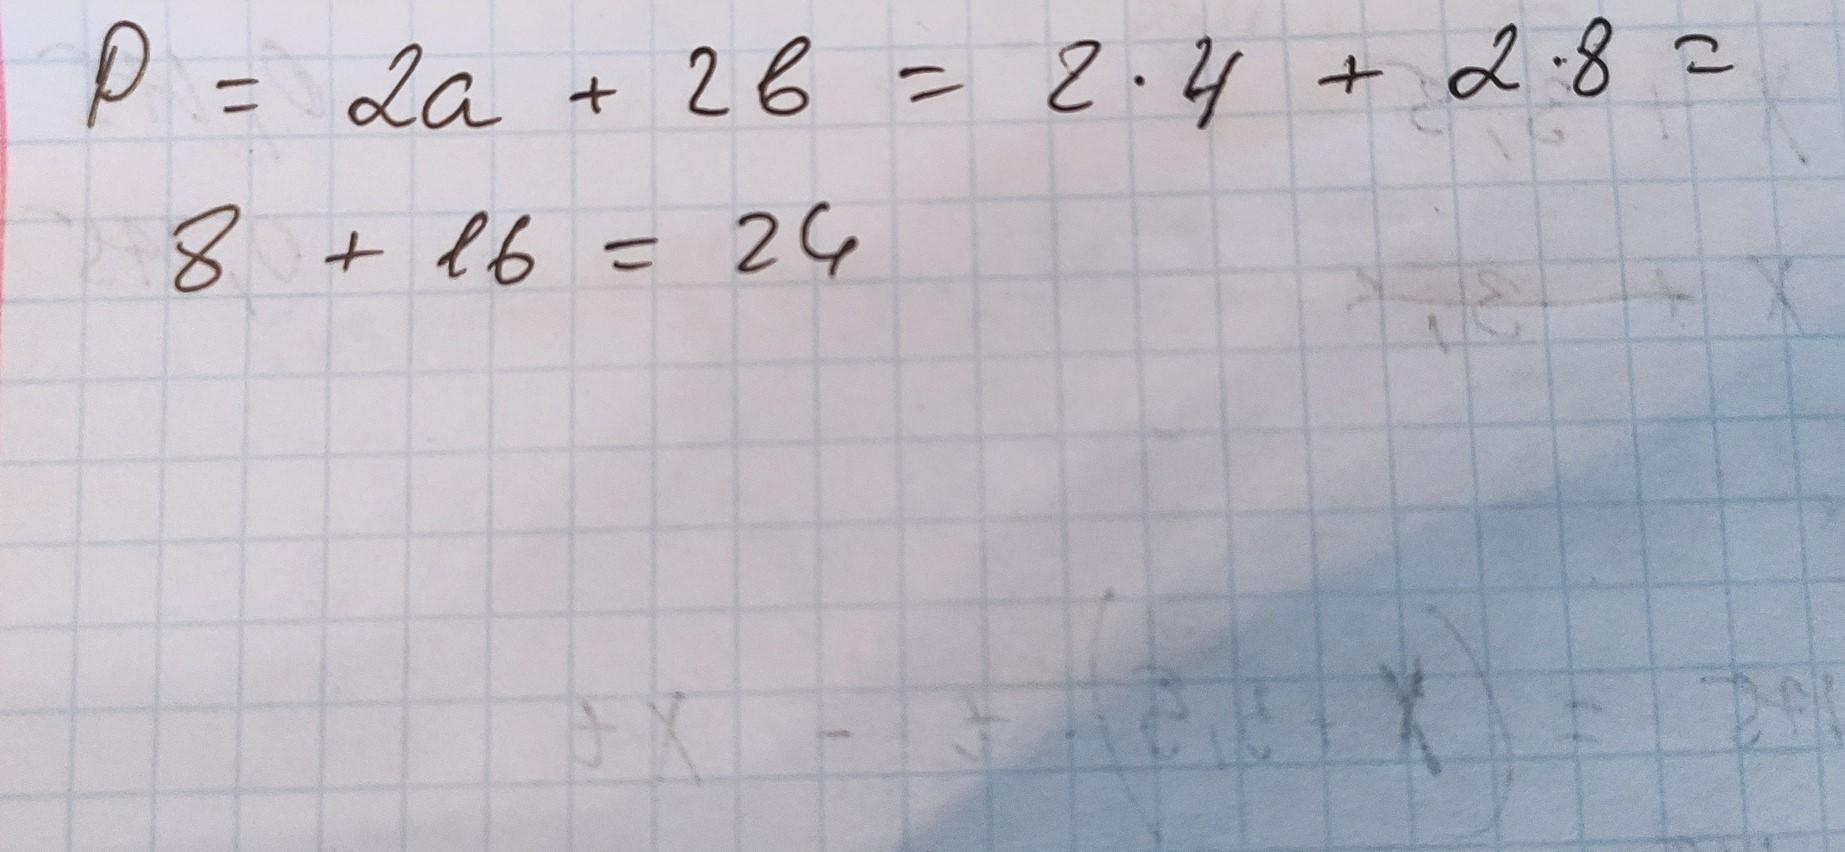 P = 2a + 2b = 2·4 + 2·8 =
8 + 16 = 24